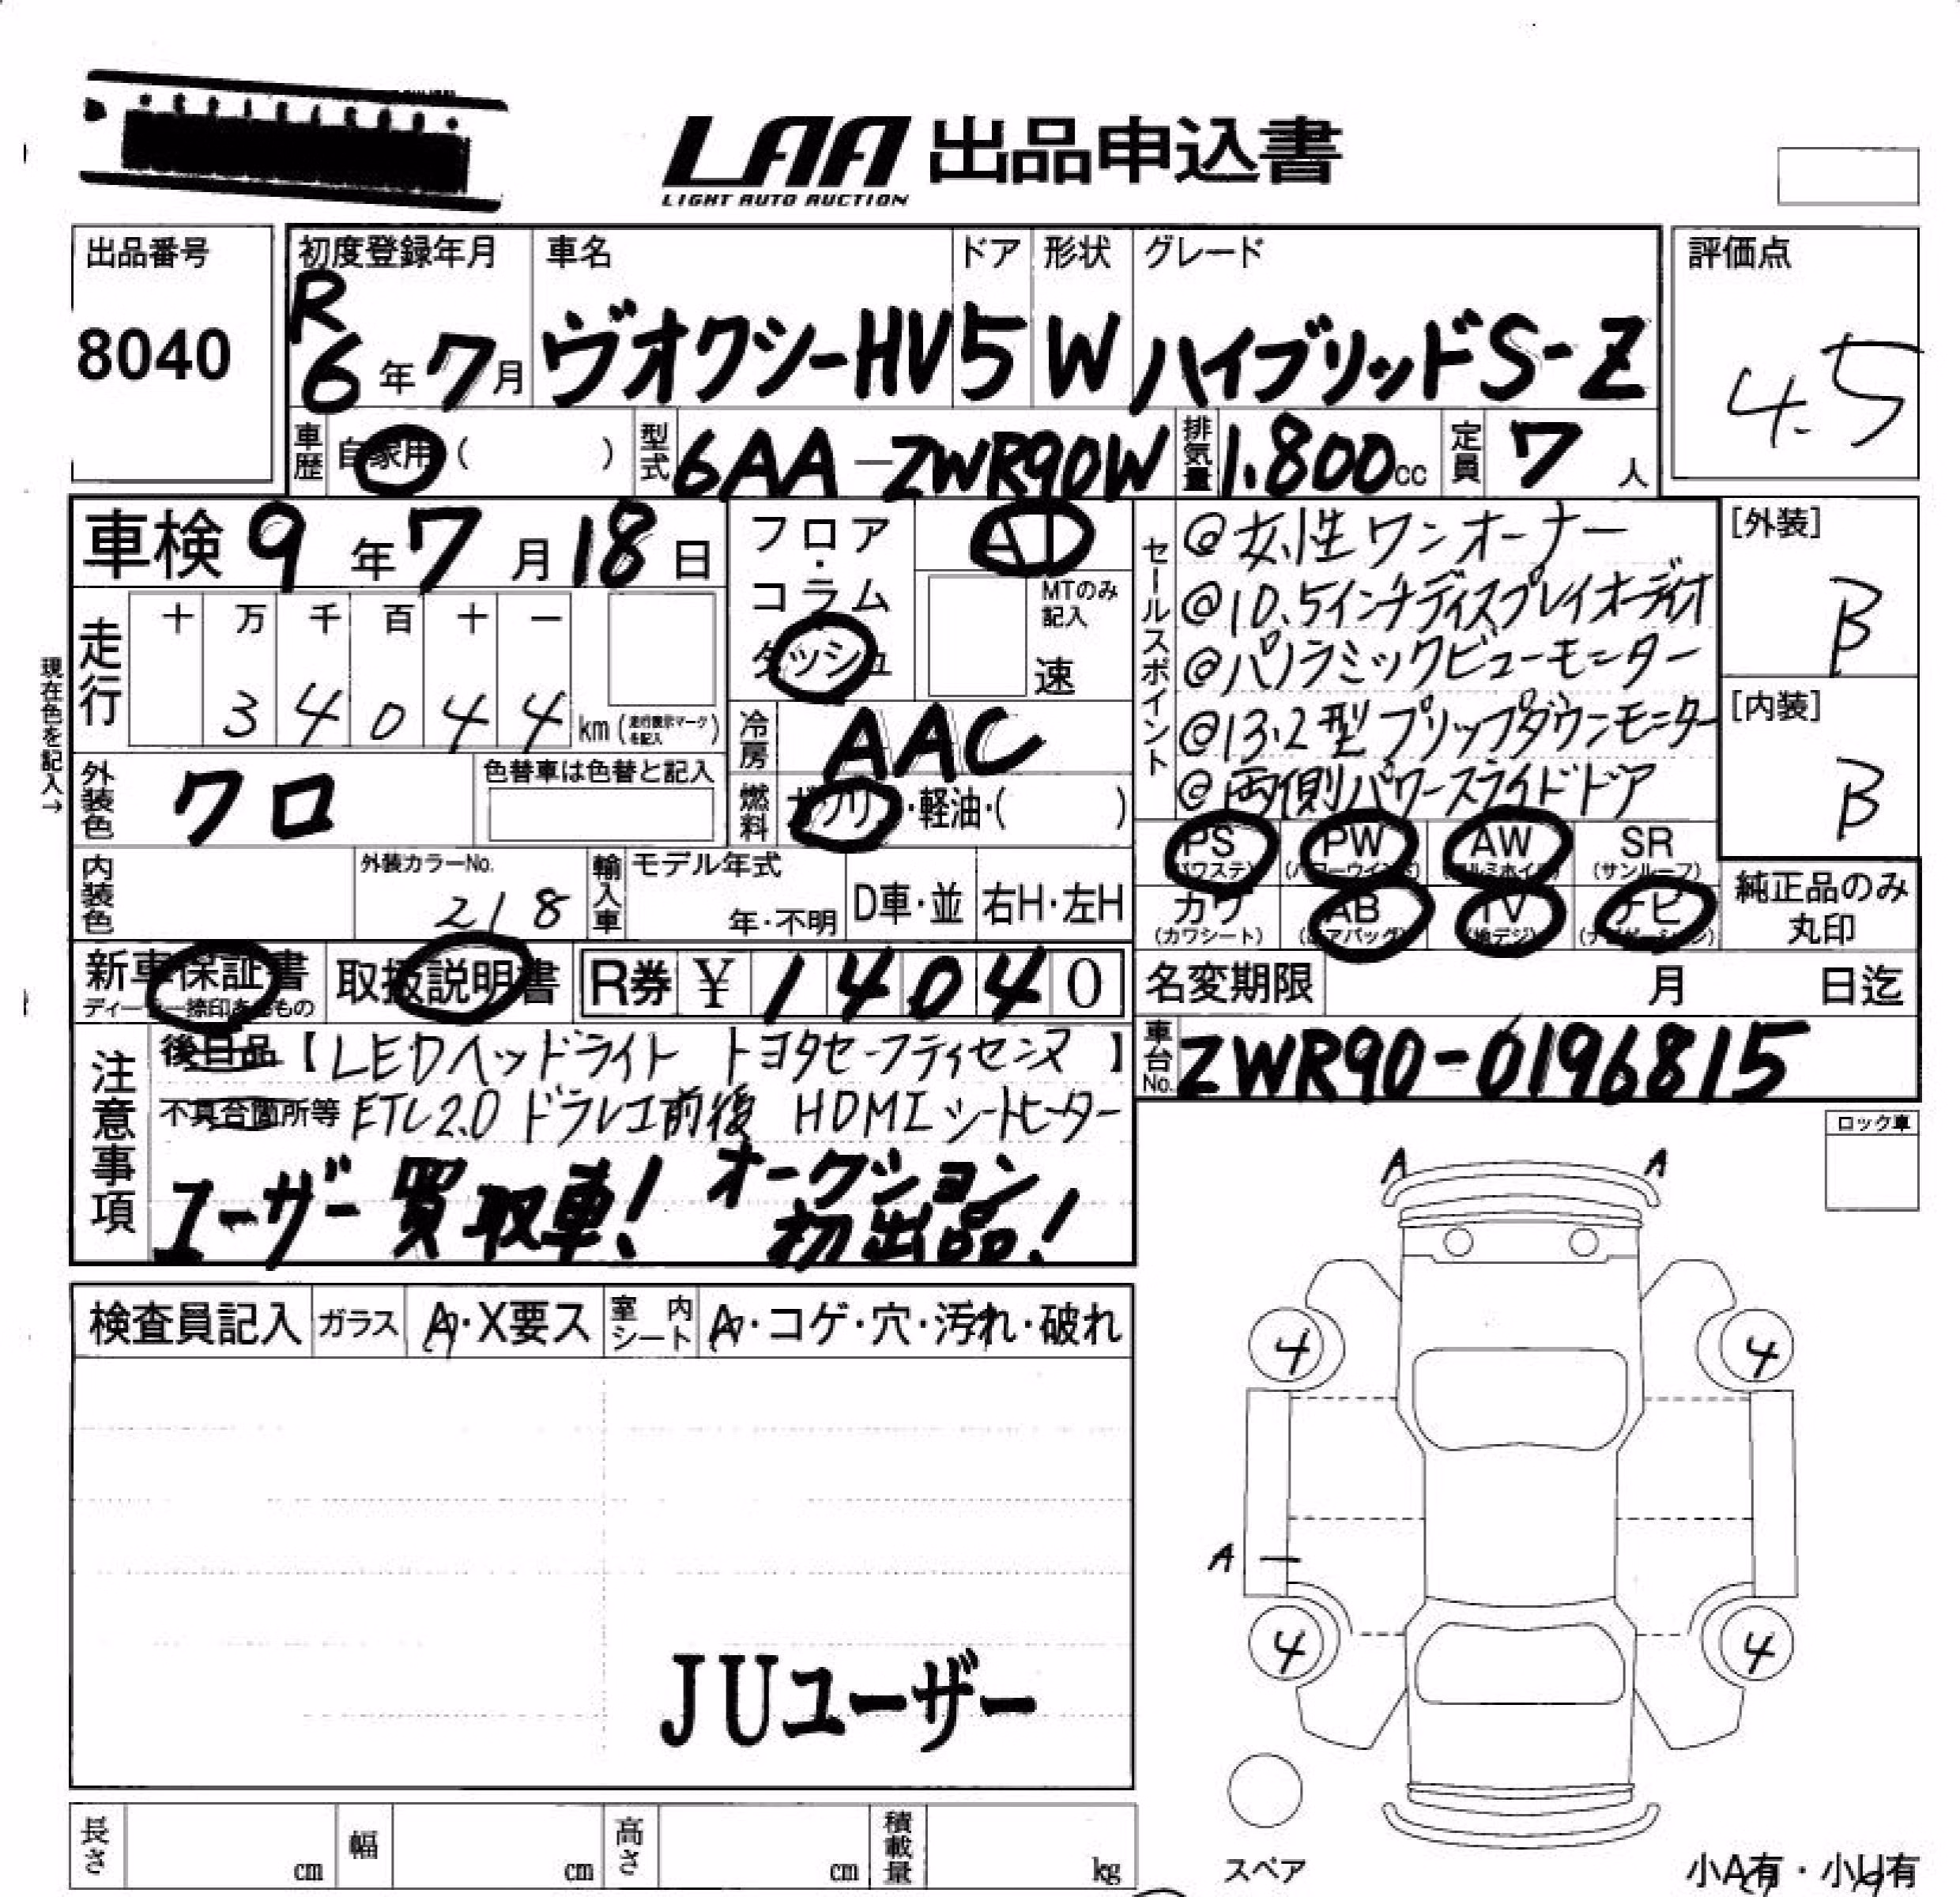 LAA 出品申込書
LIGHT AUTO AUCTION
出品番号
8040
初度登録年月
R
6年7月
車名
ヴオクシーHV
ドア
5
形状
W
グレード
ハイブリッドS-Z
評価点
4.5
車歴 自家用 ( )
型式 6AA-ZWR90W
排気量 1.800cc
定員 7人
車検 9年7月18日
フロア・コラム
ダッシュ
AT
MTのみ記入
速
走行
十 万 千 百 十 一
3 4 0 4 4 km (走行表示マークを記入)
現在色を記入→
冷房 AAC
外装色 クロ
色替車は色替と記入
燃料 ガソリ・軽油・( )
セールスポイント
@女性ワンオーナー
@10.5インチディスプレイオーディオ
@パノラミックビューモニター
@13.2型プリップダウンモニター
@両側パワースライドドア
[外装]
B
[内装]
B
PS (パワステ)
PW (パワーウインドウ)
AW (アルミホイル)
SR (サンルーフ)
カワ (カワシート)
AB (エアバッグ)
TV (地デジ)
ナビ (ナビゲーション)
純正品のみ丸印
内装色
外装カラーNo.
218
輸入車
モデル年式
年・不明
D車・並
右H・左H
新車保証書
ディーラー捺印あるもの
取扱説明書
R券 ¥ 14040
名変期限 月 日迄
車台No. ZWR90-0196815
注意事項
後日品【LEDヘッドライト トヨタセーフティセンス】
不具合箇所等 ETC2.0 ドラレコ前後 HDMI シートヒーター
ユーザー買取車! オークション
初出品!
ロック車
A A
検査員記入
ガラス A・X要ス
室内シート A・コゲ・穴・汚れ・破れ
4 4
A
4 4
JUユーザー
スペア
長さ cm
幅 cm
高さ cm
積載量 kg
小A有・小U有